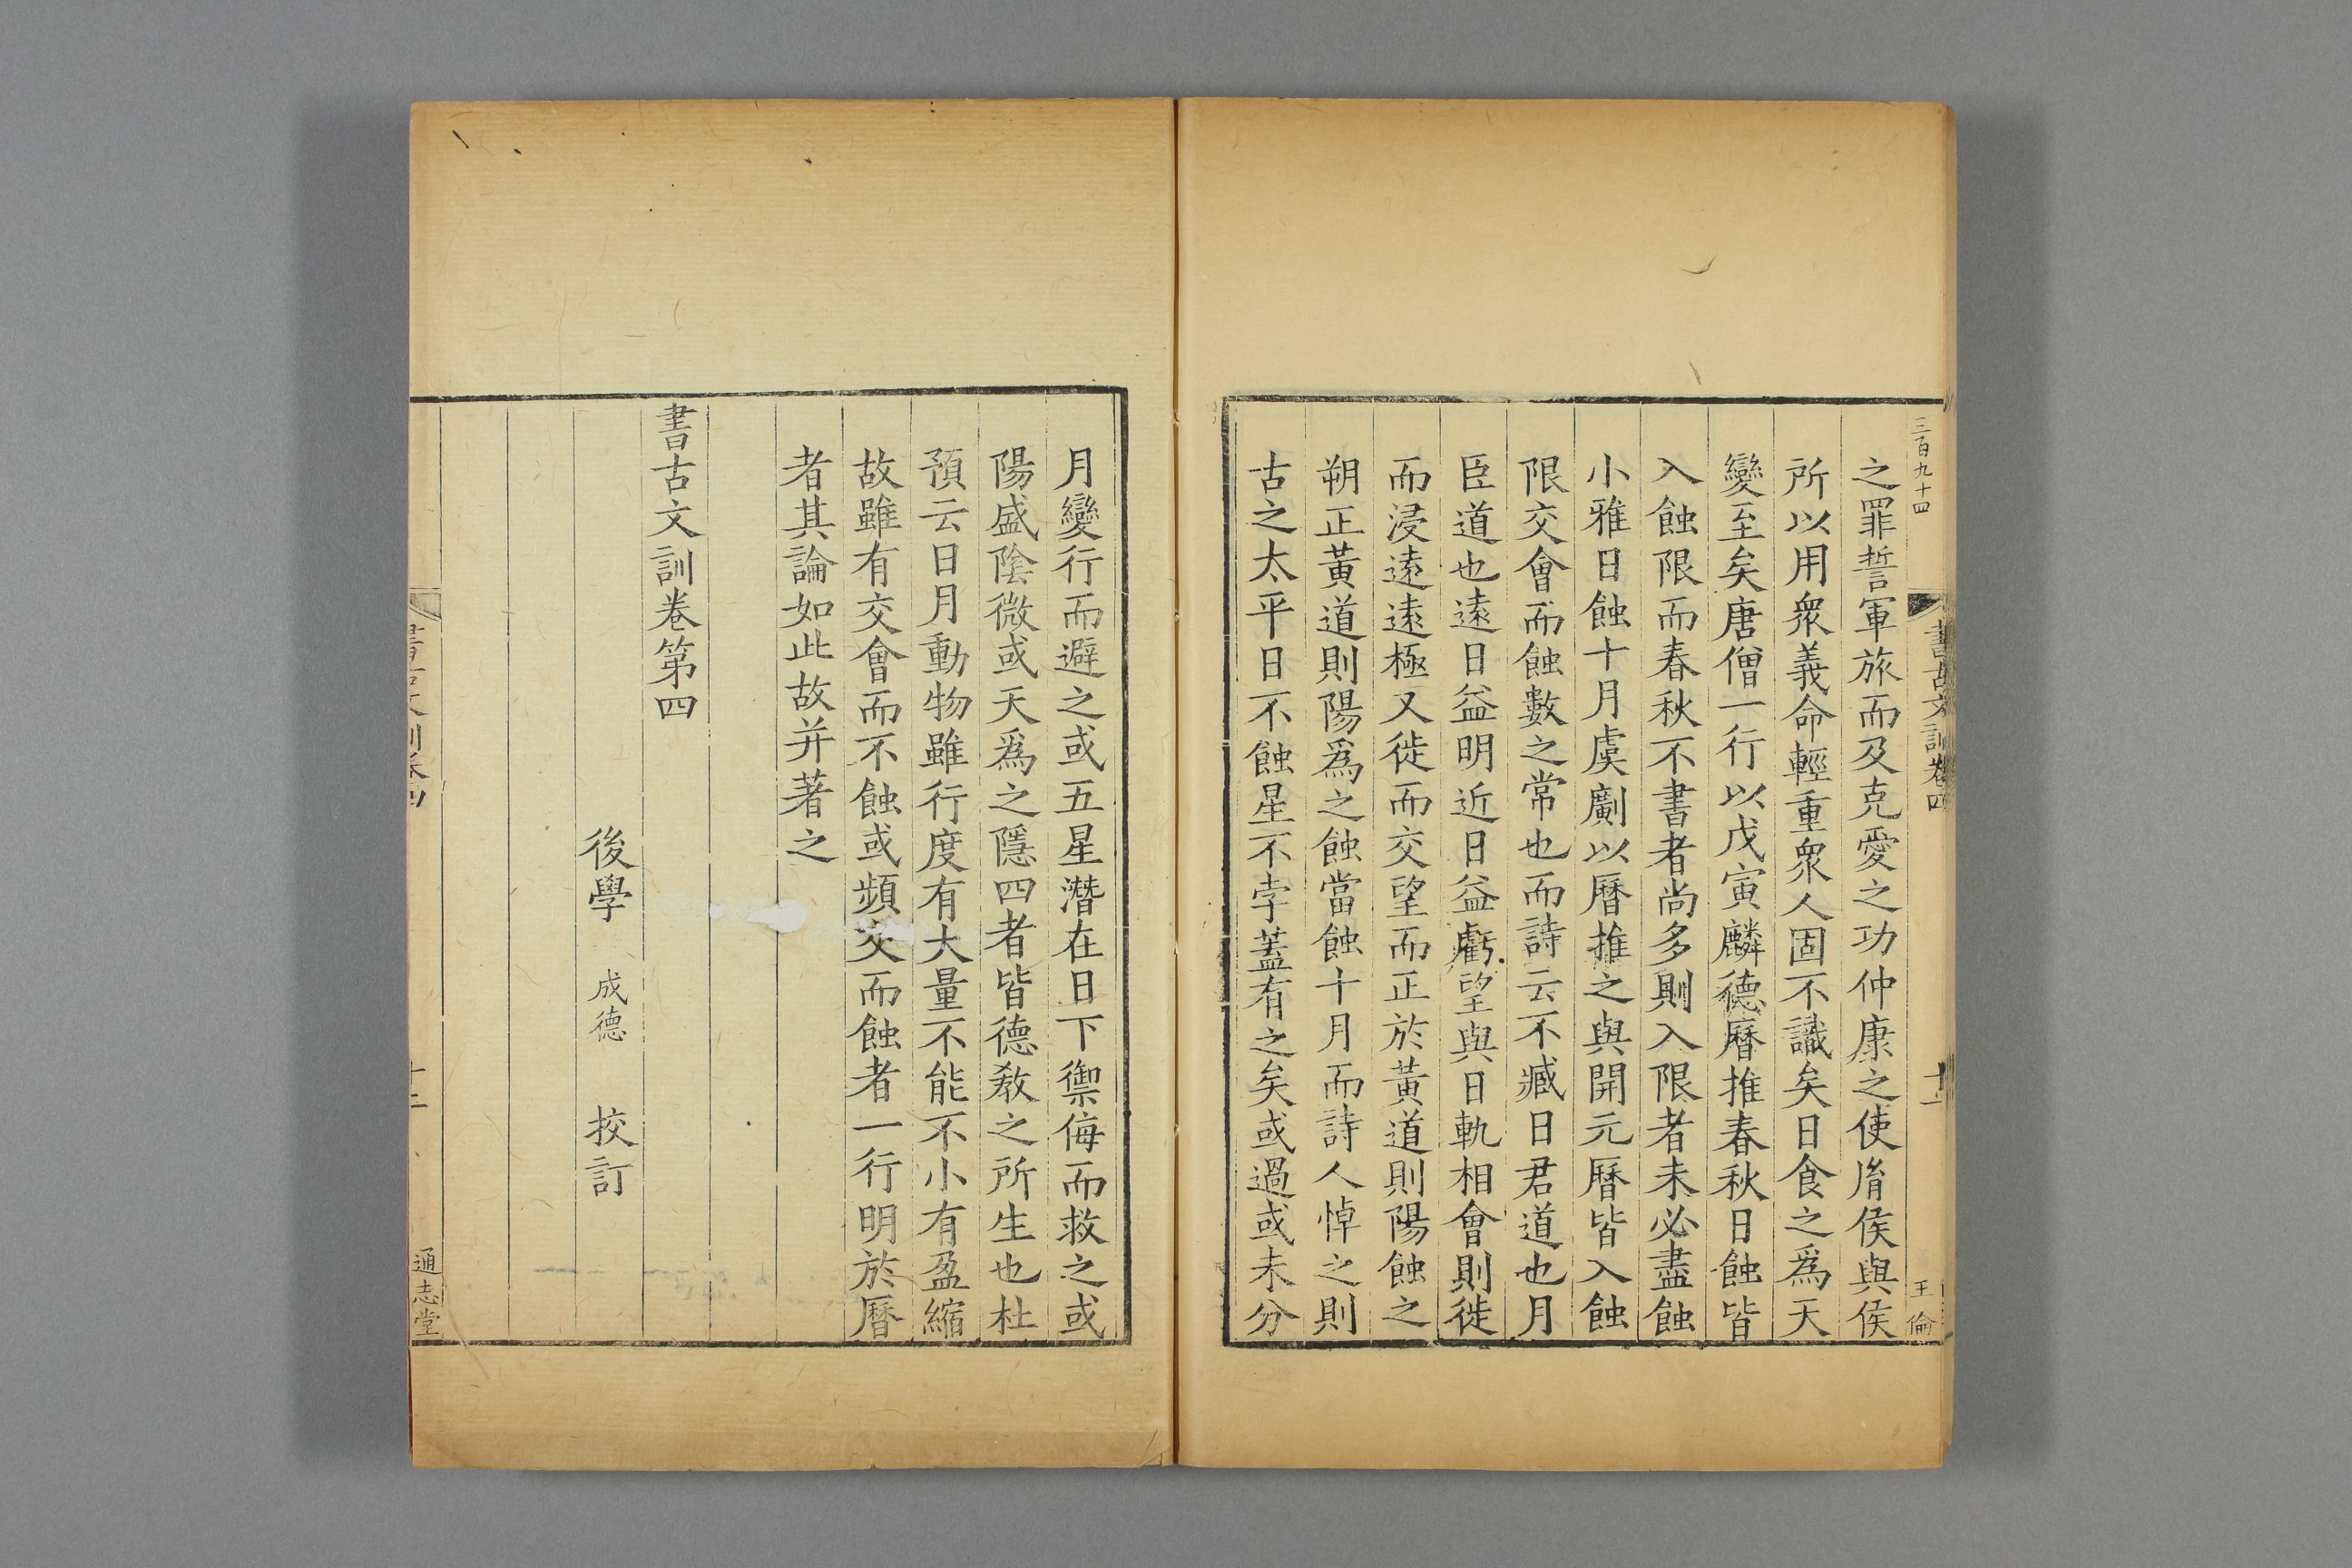 三百九十四
書古文訓卷四
十二
王倫
之罪誓軍旅而及克愛之功仲康之使胤侯與侯
所以用衆義命輕重衆人固不識矣日食之爲天
變至矣唐僧一行以戊寅麟德曆推春秋日蝕皆
入蝕限而春秋不書者尚多則入限者未必盡蝕
小雅日蝕十月虞劇以曆推之與開元曆皆入蝕
限交會而蝕數之常也而詩云不臧日君道也月
臣道也遠日益明近日益虧望與日軌相會則徙
而浸遠遠極又徙而交望而正於黃道則陽蝕之
朔正黃道則陽爲之蝕當蝕十月而詩人悼之則
古之太平日不蝕星不孛蓋有之矣或過或未分
月變行而避之或五星潛在日下禦侮而救之或
陽盛陰微或天爲之隱四者皆德敎之所生也杜
預云日月動物雖行度有大量不能不小有盈縮
故雖有交會而不蝕或頻交而蝕者一行明於曆
者其論如此故并著之
書古文訓卷第四
後學 成德 挍訂
通志堂